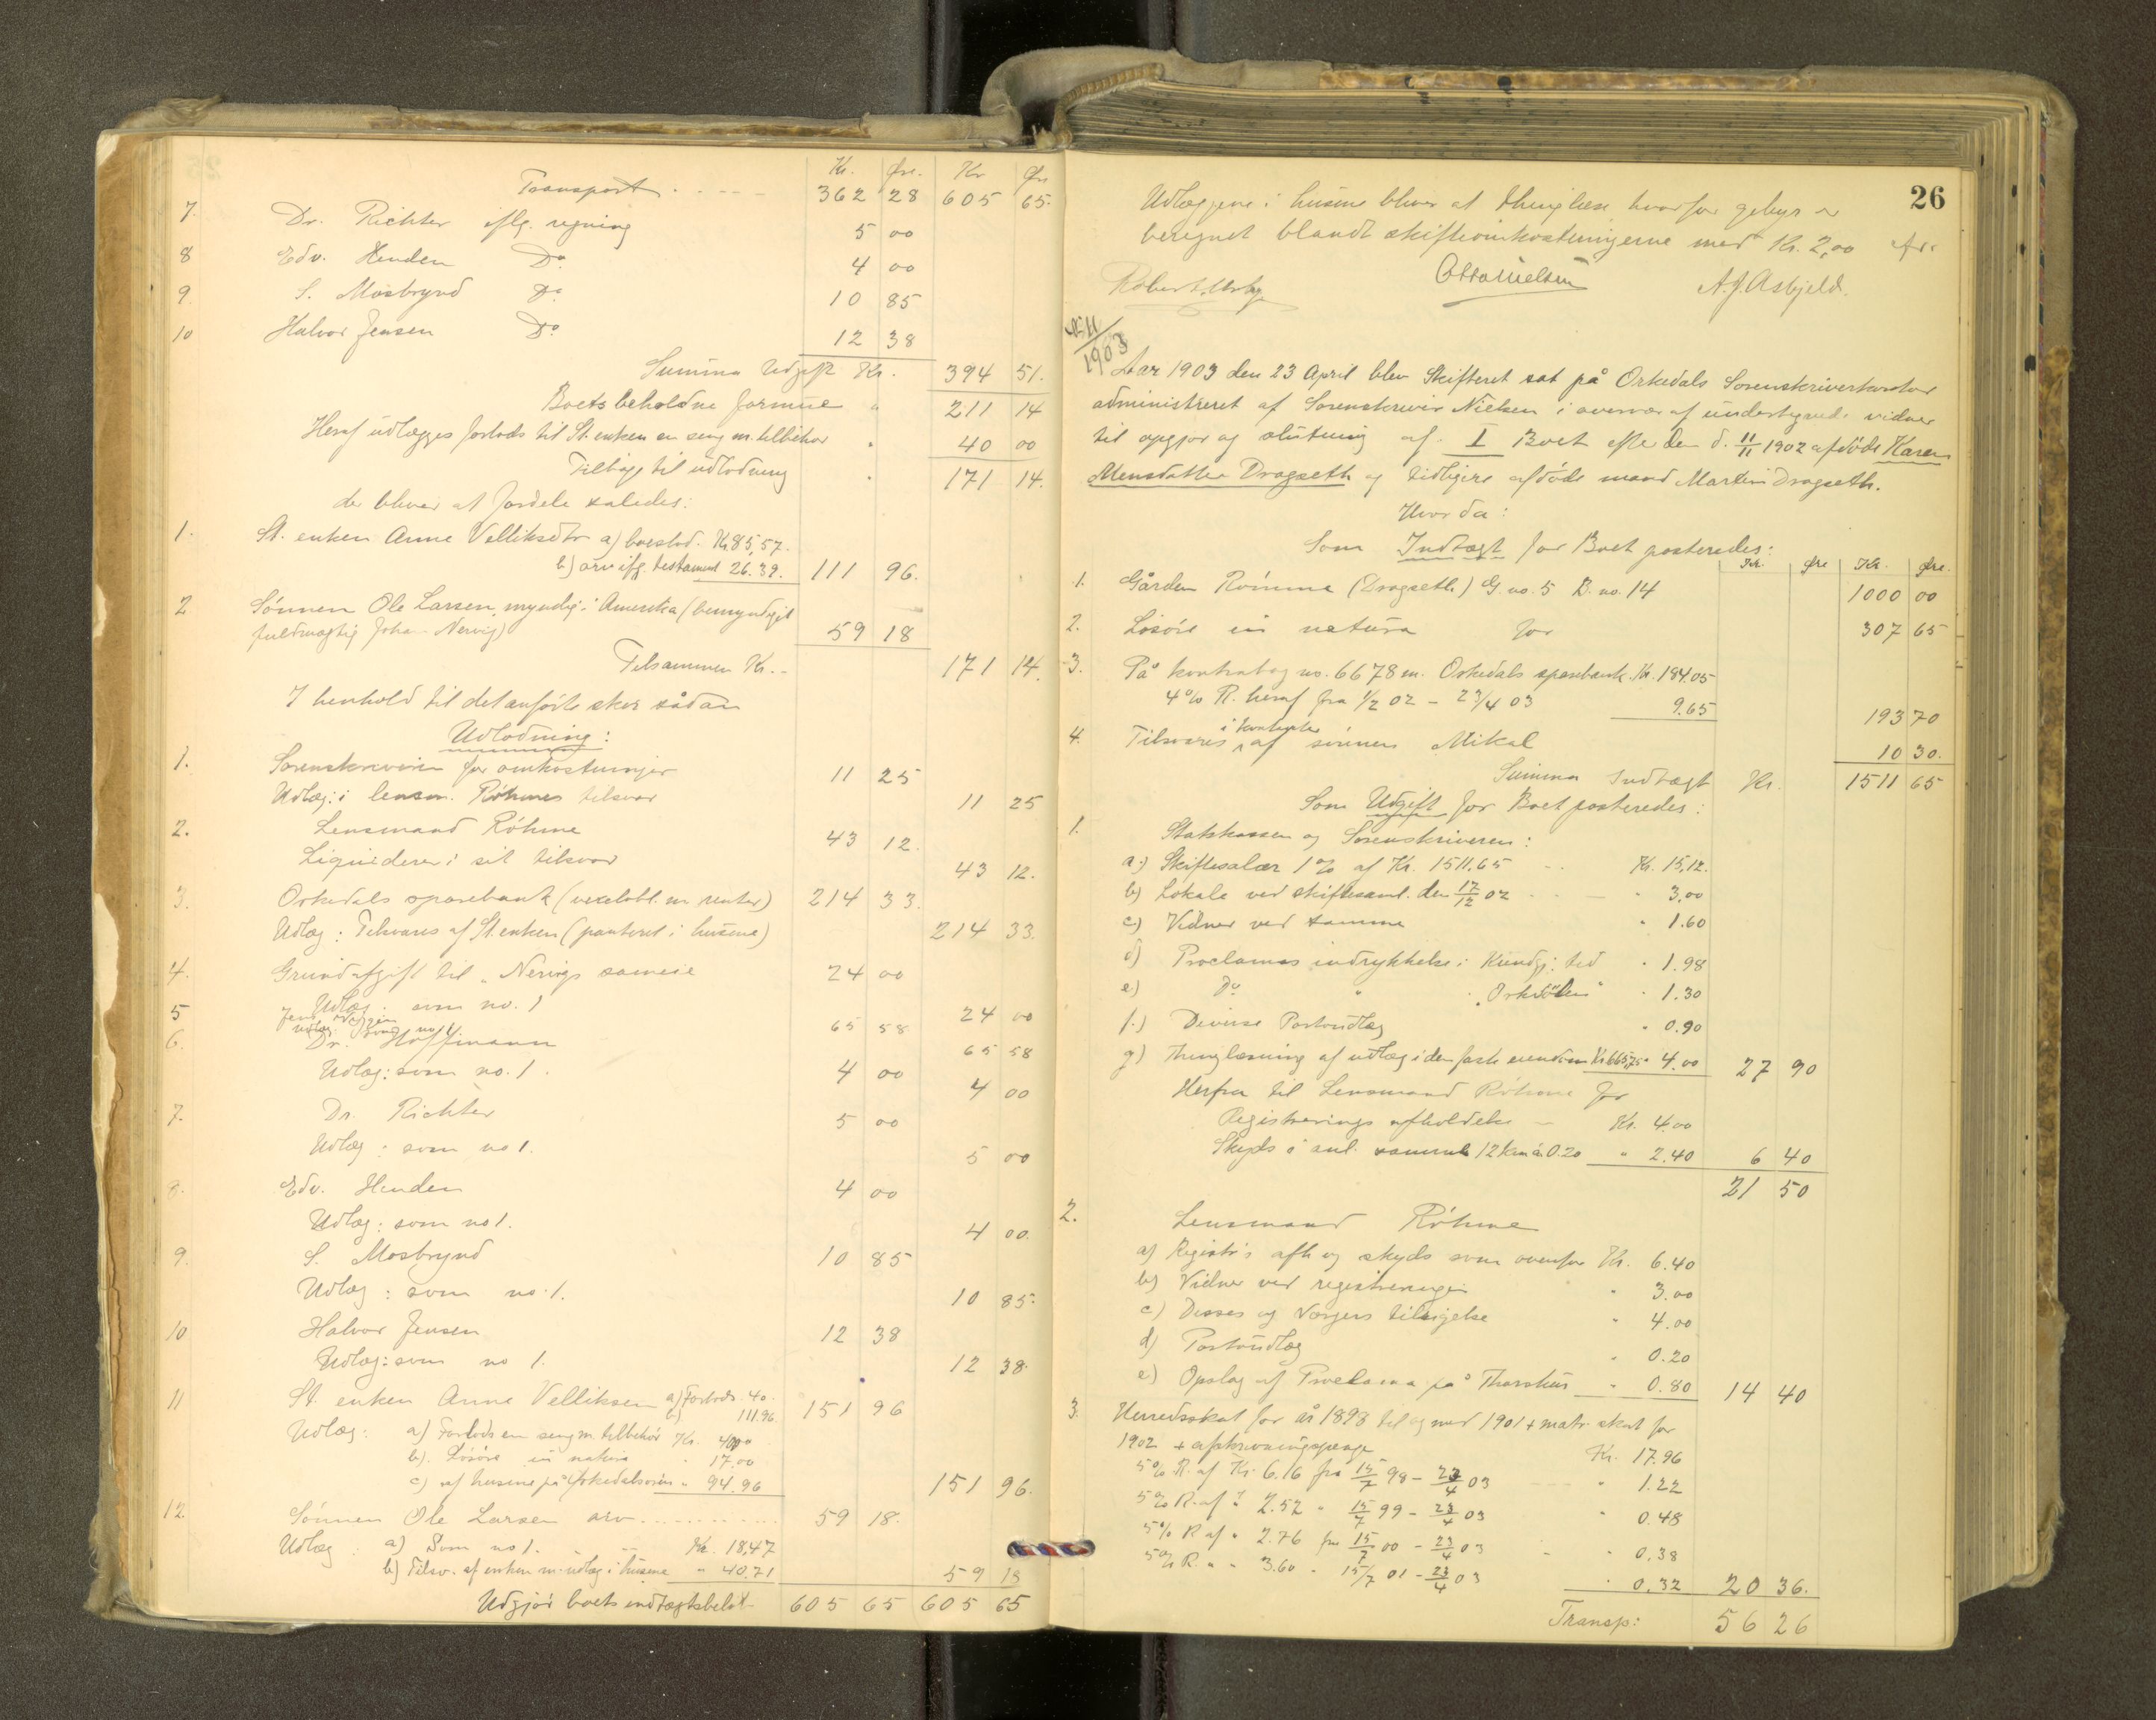 Kr. Øre. Kr Øre
Transport. 362 28 605 65.
7. Dr. Richter iflg. regning 5 00
8 Edv. Henden Do. 4 00
9. S. Mosbrynd Do 10 85
10 Halvor Jensen Do 12 38
Summa Udgift Kr. 394 51.
Boets beholdne formue " 211 14
Heraf udlægges forlods til St. enken en seng m. tilbehør " 40 00
Tilbage til udlodning " 171 14.
der bliver at fordele således:
1. St. enken Anne Velliksdtr a) boeslod. Kr 85,57.
b) arv ifg. testament 26.39. 111 96.
2 Sønnen Ole Larsen, myndig i Amerika (bemyndiget
fuldmægtig Johan Nervig) 59 18
Tilsammen Kr. 171 14.
I henhold til det anførte sker sådan
Udlodning:
1. Sorenskriveren for omkostninger 11 25
Udlæg: i lensm. Röhmes tilsvar 11 25
2. Lensmand Röhme 43 12.
Liquiderer i sit tilsvar 43 12.
3. Orkedals sparebank (vexelobl. m renter) 214 33.
Udlæg: Tilsvares af St. enken (panteret i husene) 214 33.
4. Grundafgift til "Nervigs sameie 24 00
Udlæg. som no. 1 24 00
5 Jens
Udlæg: som no 1. 65 58 65 58
6. Dr. Hoffmann
Udlæg: som no. 1. 4 00 4 00
7. Dr. Richter 5 00
Udlæg: som no 1. 5 00
8. Edv. Henden 4 00
Udlæg: som no 1. 4 00.
9. S. Mosbrynd 10 85
Udlæg: som no. 1. 10 85.
10 Halvor Jensen 12 38
Udlæg: som no 1. 12 38.
11 St. enken Anne Velliksen a) Forlods. 40.
b) 111.96. 151 96
Udlæg: a) Forlods en seng m. tilbehör Kr. 40,00
b). Lösöre in natura " 17.00
c) af husene på Orkedalsören " 94.96 151 96.
12. Sønnen Ole Larsen arv 59 18.
Udlæg: a) Som no 1. Kr. 18,47
b) Tilsv. af enken m. udlæg i husene " 40.71 59 18
Udgjør boets indtægtsbeløb 605 65 605 65
26
Udlæggene i husene bliver at thinglæse hvorfor gebyr er
beregnet blandt skifteomkostningerne med Kr. 2,00
Otto Nielsen A. J. Asbjeld.
1903
Aar 1903 den 23 April blev Skifteret sat på Orkedals Sorenskriverkontor
administreret af Sorenskriver Nielsen i overvær af undertegnede vidner
til opgjør og slutning af I Boet efter den d. 11/11 1902 afdøde Karen
Monsdatter Dragseth og tidligere afdøde mand Martin Dragseth.
Hvorda:
Som Indtægt for Boet posteredes:
Kr. Øre Kr. Øre.
1. Gården Römme (Dragseth) G. no. 5 B. no. 14 1000 00
2. Løsöre in natura for 307 65
3. På kontrabog no. 6678 m. Orkedals sparebank. Kr. 184.05
4% R. heraf fra 1/2 02 - 23/4 03 9.65 193 70
4. Tilsvares i kontanter af sønnen Mikal 10 30.
Summa Indtægt Kr. 1511 65
Som Udgift for Boet posteredes:
1. Statskassen og Sorenskriveren:
a.) Skiftesalær 1% af Kr. 1511.65 Kr. 15,12.
b) Lokale ved skiftesaml. den 17/12 02 " 3,00
c) Vidner ved samme " 1.60
d) Proclamas indrykkelse i Kundgj: tid " 1.98
e) Do " "Orkdölen" " 1.30
f.) Diverse Portoudlæg " 0.90
g) Thinglæsning af udlæg i den faste eiendom Kr 665,75 " 4.00 27 90
Herfra til Lensmand Röhme for
Registrerings afholdelse Kr. 4.00
Skyds i anl. samme 12 km à 0.20 " 2.40 6 40
21 50
2. Lensmand Röhme
a) Registr's afh og skyds som ovenfor Kr. 6.40
b) Vidner ved registreringen " 3.00
c) Disses og Vorgers tilsigelse " 4.00
d) Portoudlæg " 0.20
e) Opslag af Proclama på Thorshus " 0.80 14 40
3. Herredsskat for år 1898 til og med 1901 + matr. skat for
1902 + afskrivningspenge Kr. 17.96
5% R. af Kr. 6.16 fra 15/7 98 - 23/4 03 " 1.22
5% R. af " 2.52 " 15/7 99 - 23/4 03 " 0.48
5% R af " 2.76 fra 15/7 00 - 23/4 03 " 0.38
5% R. " " 3.60 " 15/7 01 - 23/4 03 " 0.32 20 36.
Transp: 56 26